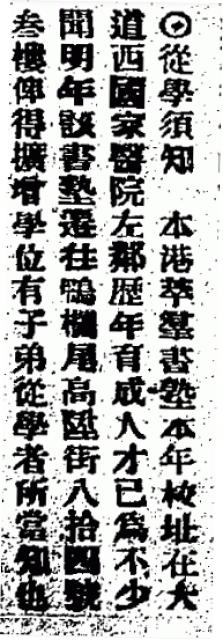 ⊙從學須知　本港萃羣書塾本年校址在大
道西國家醫院左鄰歷年育成人才已爲不少
聞明年該書塾遷往鴨欄尾高陞街八拾四號
叁樓俾得擴增學位有子弟從學者所當知也